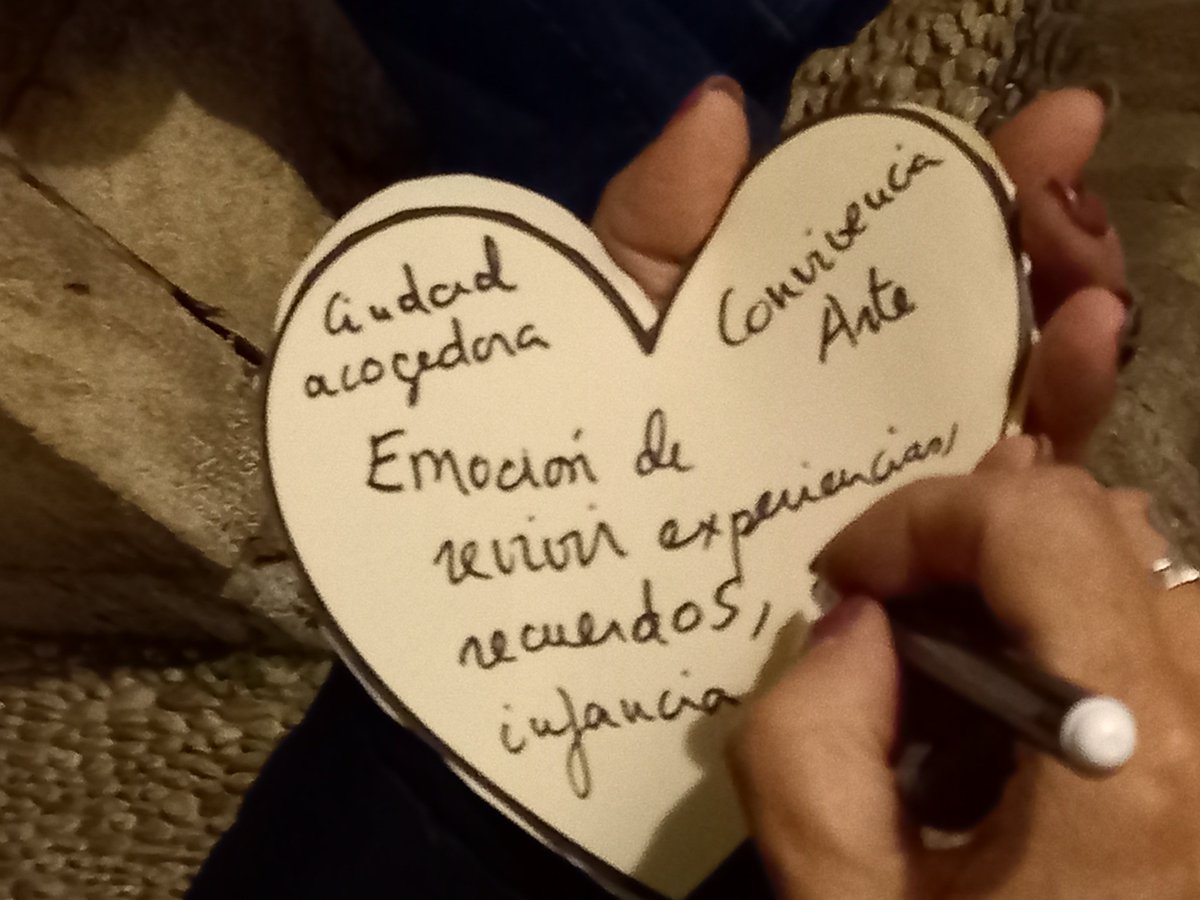 Ciudad
acogedora
Convivencia
Arte
Emoción de
revivir experiencias,
recuerdos,
infancia